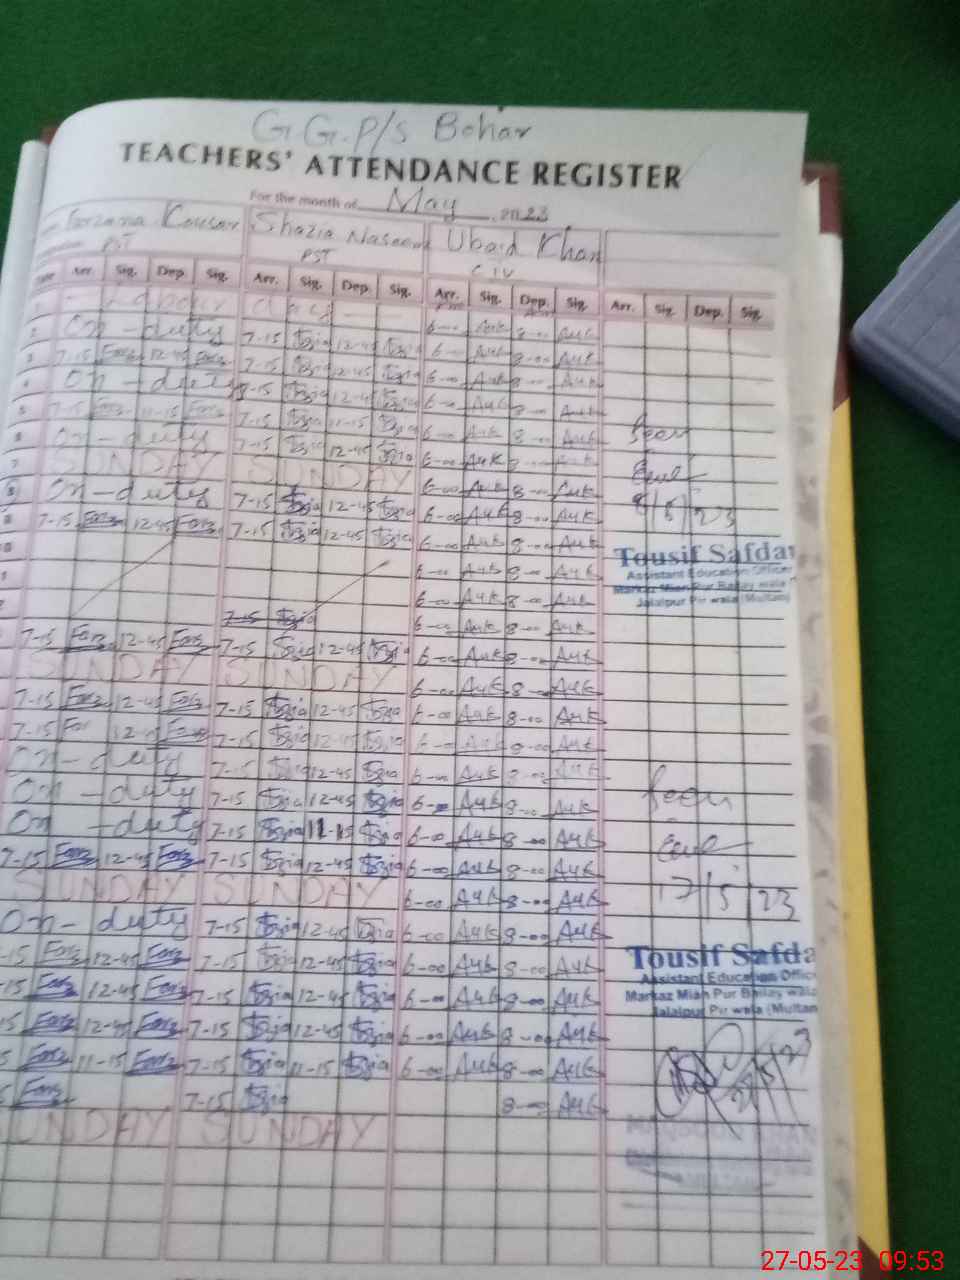 G.G.P/S Bohar
TEACHERS' ATTENDANCE REGISTER
For the month of May, 2023
Farzana Kousar Shazia Naseem Ubaid Khan
PST PST C IV
Arr. Sig. Dep. Sig. Arr. Sig. Dep. Sig. Arr. Sig. Dep. Sig. Arr. Sig. Dep. Sig.
1 Labour day
2 On-duty 7-15 12-45 6-00 Auk 8-00 Auk
3 7-15 Farz 12-45 Farz 7-15 12-45 6-00 Auk 8-00 Auk
4 On-duty 7-15 12-45 6-00 Auk 8-00 Auk
5 7-15 Farz 11-15 Farz 7-15 11-15 6-00 Auk 8-00 Auk
6 On-duty 7-15 12-45 6-00 Auk 8-00 Auk
7 SUNDAY SUNDAY 6-00 Auk 8-00 Auk
8 On-duty 7-15 12-45 6-00 Auk 8-00 Auk
7-15 Farz 12-45 Farz 7-15 12-45 6-00 Auk 8-00 Auk
10 6-00 Auk 8-00 Auk
6-00 Auk 8-00 Auk
7-15 6-00 Auk 8-00 Auk
7-15 Farz 12-45 Farz 7-15 12-45 6-00 Auk 8-00 Auk
SUNDAY SUNDAY 6-00 Auk 8-00 Auk
7-15 Farz 12-45 Farz 7-15 12-45 6-00 Auk 8-00 Auk
7-15 Far 12-45 Farz 7-15 12-45 6-00 Auk 8-00 Auk
On-duty 7-15 12-45 6-00 Auk 8-00 Auk
On-duty 7-15 12-45 6-00 Auk 8-00 Auk
On-duty 7-15 11-15 6-00 Auk 8-00 Auk
7-15 Farz 12-45 Farz 7-15 12-45 6-00 Auk 8-00 Auk
SUNDAY SUNDAY 6-00 Auk 8-00 Auk
On-duty 7-15 12-45 6-00 Auk 8-00 Auk
-15 Farz 12-45 Farz 7-15 12-45 6-00 Auk 8-00 Auk
-15 Farz 12-45 Farz 7-15 12-45 6-00 Auk 8-00 Auk
15 Farz 12-45 Farz 7-15 12-45 6-00 Auk 8-00 Auk
5 Farz 11-15 Farz 7-15 11-15 6-00 Auk 8-00 Auk
5 Farz 7-15 8-00 Auk
UNDAY SUNDAY
Seen
8/5/23
Tousif Safdar
Assistant Education Officer
Markaz Mian Pur Bailay wala
Jalalpur Pir wala (Multan)
Seen
17/5/23
Tousif Safda
Assistant Education Offic
Markaz Mian Pur Bailay wala
Jalalpur Pir wala (Multan
27-05-23 09:53